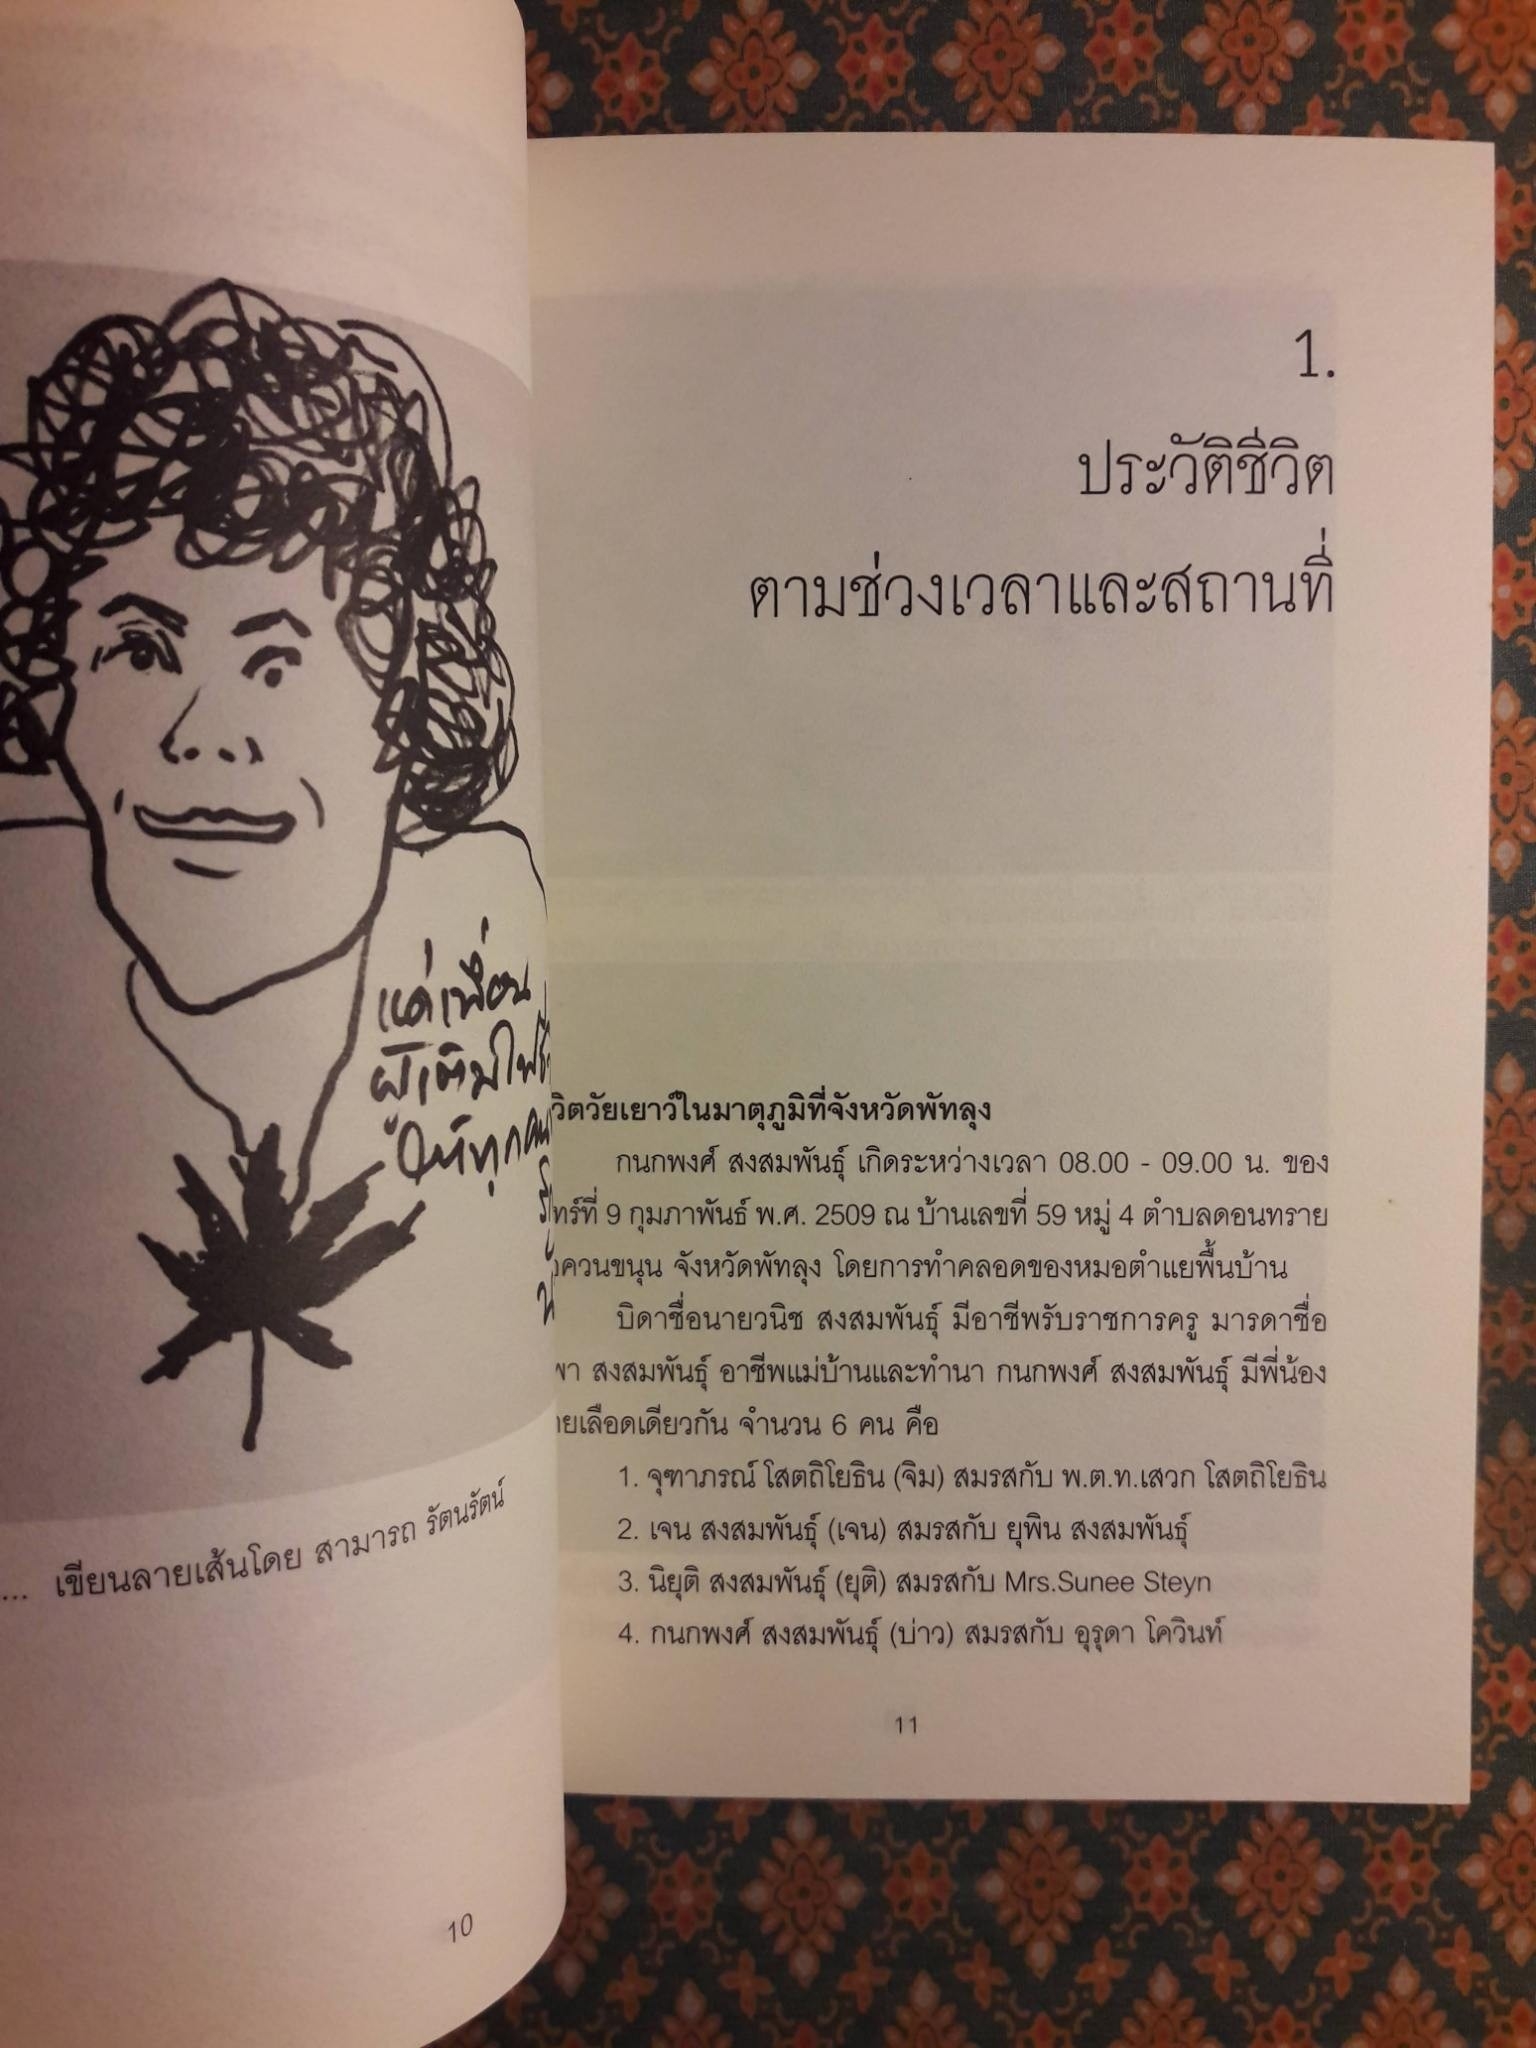 แด่เพื่อน
ผู้เติมไฟ
ให้ทุกคน
... เขียนลายเส้นโดย สามารถ รัตนรัตน์
10
1.
ประวัติชีวิต
ตามช่วงเวลาและสถานที่
วิตวัยเยาว์ในมาตุภูมิที่จังหวัดพัทลุง
กนกพงศ์ สงสมพันธุ์ เกิดระหว่างเวลา 08.00 - 09.00 น. ของ
ทร์ที่ 9 กุมภาพันธ์ พ.ศ. 2509 ณ บ้านเลขที่ 59 หมู่ 4 ตำบลดอนทราย
อควนขนุน จังหวัดพัทลุง โดยการทำคลอดของหมอตำแยพื้นบ้าน
บิดาชื่อนายวนิช สงสมพันธุ์ มีอาชีพรับราชการครู มารดาชื่อ
พา สงสมพันธุ์ อาชีพแม่บ้านและทำนา กนกพงศ์ สงสมพันธุ์ มีพี่น้อง
ายเลือดเดียวกัน จำนวน 6 คน คือ
1. จุฑาภรณ์ โสตถิโยธิน (จิม) สมรสกับ พ.ต.ท.เสวก โสตถิโยธิน
2. เจน สงสมพันธุ์ (เจน) สมรสกับ ยุพิน สงสมพันธุ์
3. นิยุติ สงสมพันธุ์ (ยุติ) สมรสกับ Mrs.Sunee Steyn
4. กนกพงศ์ สงสมพันธุ์ (บ่าว) สมรสกับ อุรุดา โควินท์
11